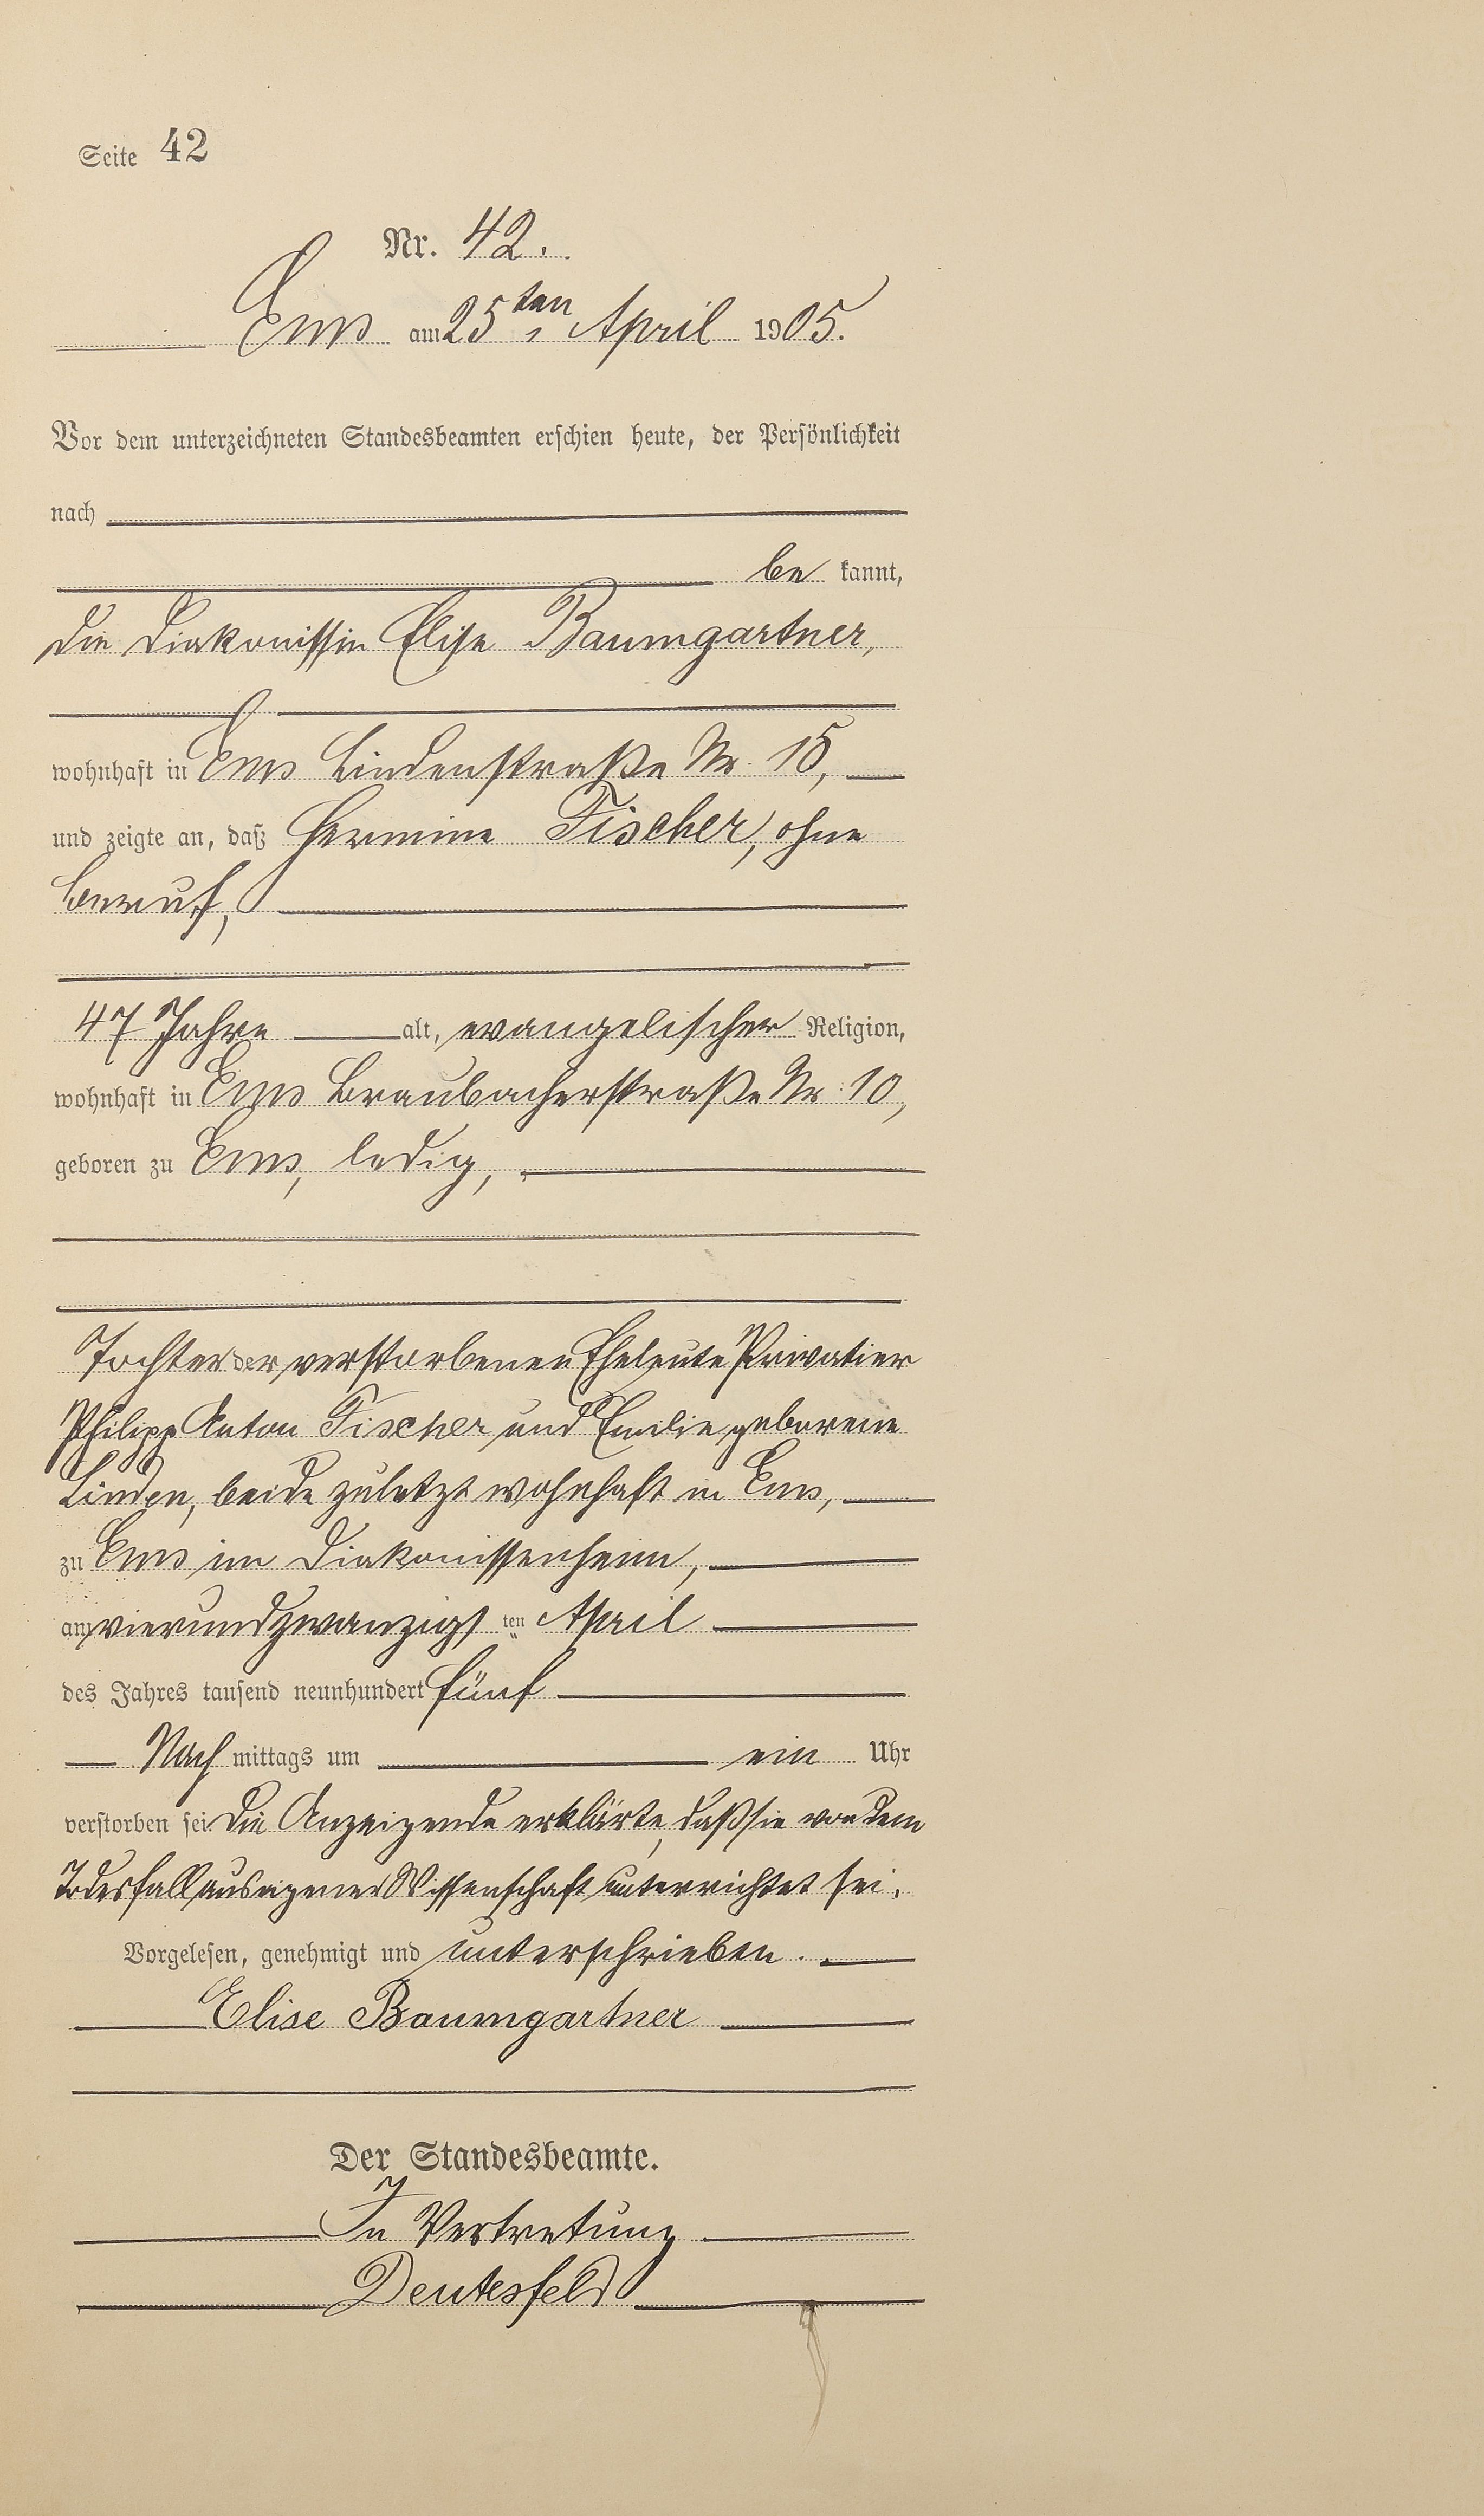 Seite 42
Nr. 42.
Ems am 25ten April 1905.
Vor dem unterzeichneten Standesbeamten erschien heute, der Persönlichkeit
nach
be kannt,
die Diakonissin Elise Baumgartner,
wohnhaft in Ems Lindenstraße Nr. 15,
und zeigte an, daß Hermine Fischer, ohne
Beruf,
47 Jahre alt, evangelischer Religion,
wohnhaft in Ems Braubacherstraße Nr. 10,
geboren zu Ems, ledig,
Tochter der verstorbenen Eheleute Privatier
Philipp Anton Fischer und Emilie geborene
Linden, beide zuletzt wohnhaft in Ems,
zu Ems im Diakonissenheim,
am vierundzwanzigs ten April
des Jahres tausend neunhundert fünf
Nach mittags um ein Uhr
verstorben sei. Die Anzeigende erklärte, daß sie von dem
Todesfall aus eigener Wissenschaft unterrichtet sei.
Vorgelesen, genehmigt und unterschrieben.
Elise Baumgartner
Der Standesbeamte.
In Vertretung
Deutesfeld